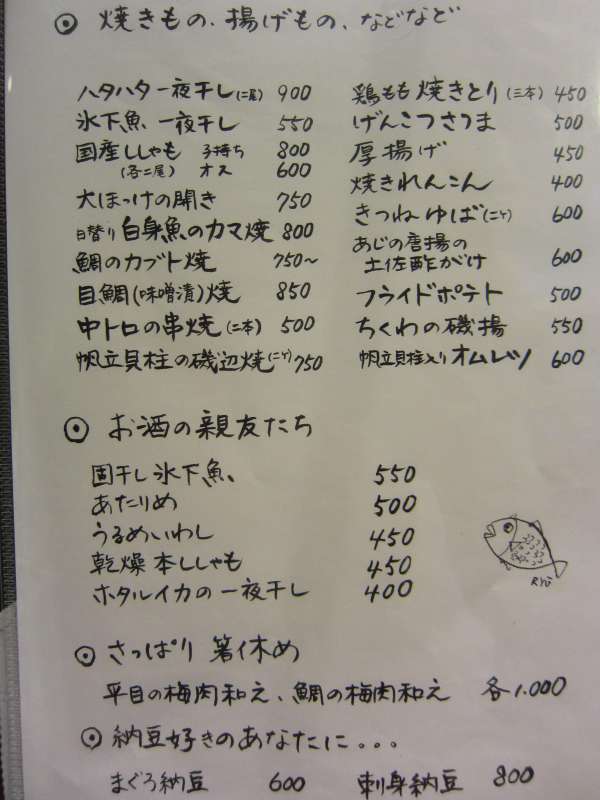 ◉ 焼きもの、揚げもの、などなど
ハタハタ一夜干し(二尾) 900
氷下魚 一夜干し 550
国産ししゃも 子持ち 800
(各二尾) オス 600
大ほっけの開き 750
日替り 白身魚のカマ焼 800
鯛のカブト焼 750〜
目鯛(味噌漬)焼 850
中トロの串焼(二本) 500
帆立貝柱の磯辺焼(二ケ) 750
鶏もも焼きとり(三本) 450
げんこつさつま 500
厚揚げ 450
焼きれんこん 400
きつねゆば(二ケ) 600
あじの唐揚の
土佐酢がけ 600
フライドポテト 500
ちくわの磯揚 550
帆立貝柱入りオムレツ 600
◉ お酒の親友たち
固干し氷下魚 550
あたりめ 500
うるめいわし 450
乾燥本ししゃも 450
ホタルイカの一夜干し 400
RYŪ
◉ さっぱり 箸休め
平目の梅肉和え、鯛の梅肉和え 各1.000
◉ 納豆好きのあなたに。。。
まぐろ納豆 600 刺身納豆 800